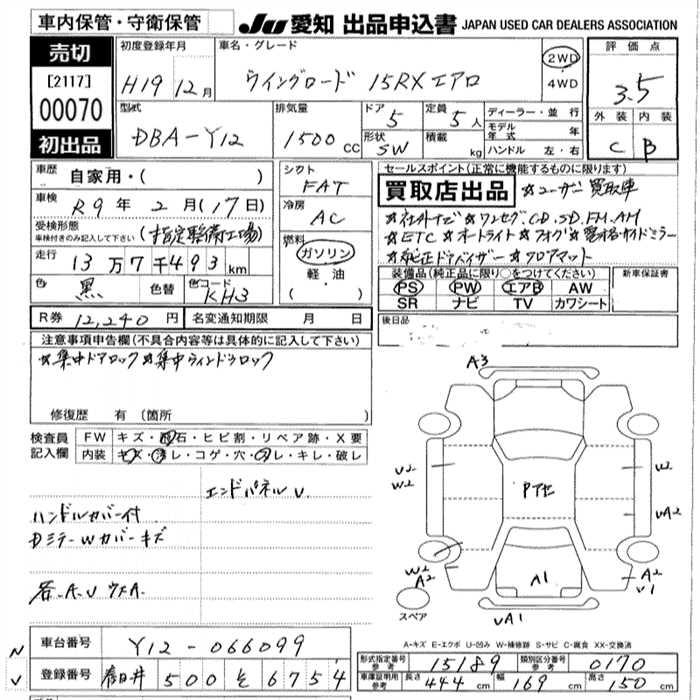 車内保管・守衛保管
JU 愛知 出品申込書 JAPAN USED CAR DEALERS ASSOCIATION
売切
[2117]
00070
初出品
初度登録年月
H19 12月
車名・グレード
ウイングロード 15RXエアロ
2WD
・
4WD
評価点
3.5
外装 内装
C B
型式
DBA-Y12
排気量
1500 CC
ドア
5
形状
SW
定員
5人
積載
kg
ディーラー・並行
モデル年式 年
ハンドル 左・右
車歴
自家用・( )
車検
R9年2月(17日)
受検形態
車検付きのみ記入して下さい
(指定整備工場)
走行
13万7千493km
色 黒 色替 色コード KH3
シフト
FAT
冷房
AC
燃料
ガソリン
・
軽油
・
( )
セールスポイント(正常に機能するものに限ります)
買取店出品 ☆ユーザー買取車
☆社外ナビ☆ワンセグ.CD.SD.FM.AM
☆ETC☆オートライト☆フォグ☆電格サイドミラー
☆純正ドアバイザー☆フロアマット
装備品(純正品に限り○をつけてください)
PS PW エアB AW
SR ナビ TV カワシート
新車保証書
R券 12,240円 名変通知期限 月 日
後日品
注意事項申告欄(不具合内容等は具体的に記入して下さい)
☆集中ドアロック☆集中ウィンドウロック
修復歴 有(箇所
検査員記入欄
FW キズ・飛石・ヒビ割・リペア跡・X要
内装 キズ・汚レ・コゲ・穴・スレ・キレ・破レ
エンドパネルU.
ハンドルカバー付
DミラーWカバーキズ
若.A.U ウスA.
A3
U2
W2
W2
UA2
Pアセ
W2
A2
A2
U1
A1
UA1
スペア
A-キズ E-エクボ U-凹み W-補修跡 S-サビ C-腐食 XX-交換済
N
V
車台番号 Y12-066099
登録番号 春日井 500 を 6754
形式指定番号 参考 15189
類別区分番号 参考 0170
車庫証明用 参考 長さ 444cm 幅 169cm 高さ 150cm